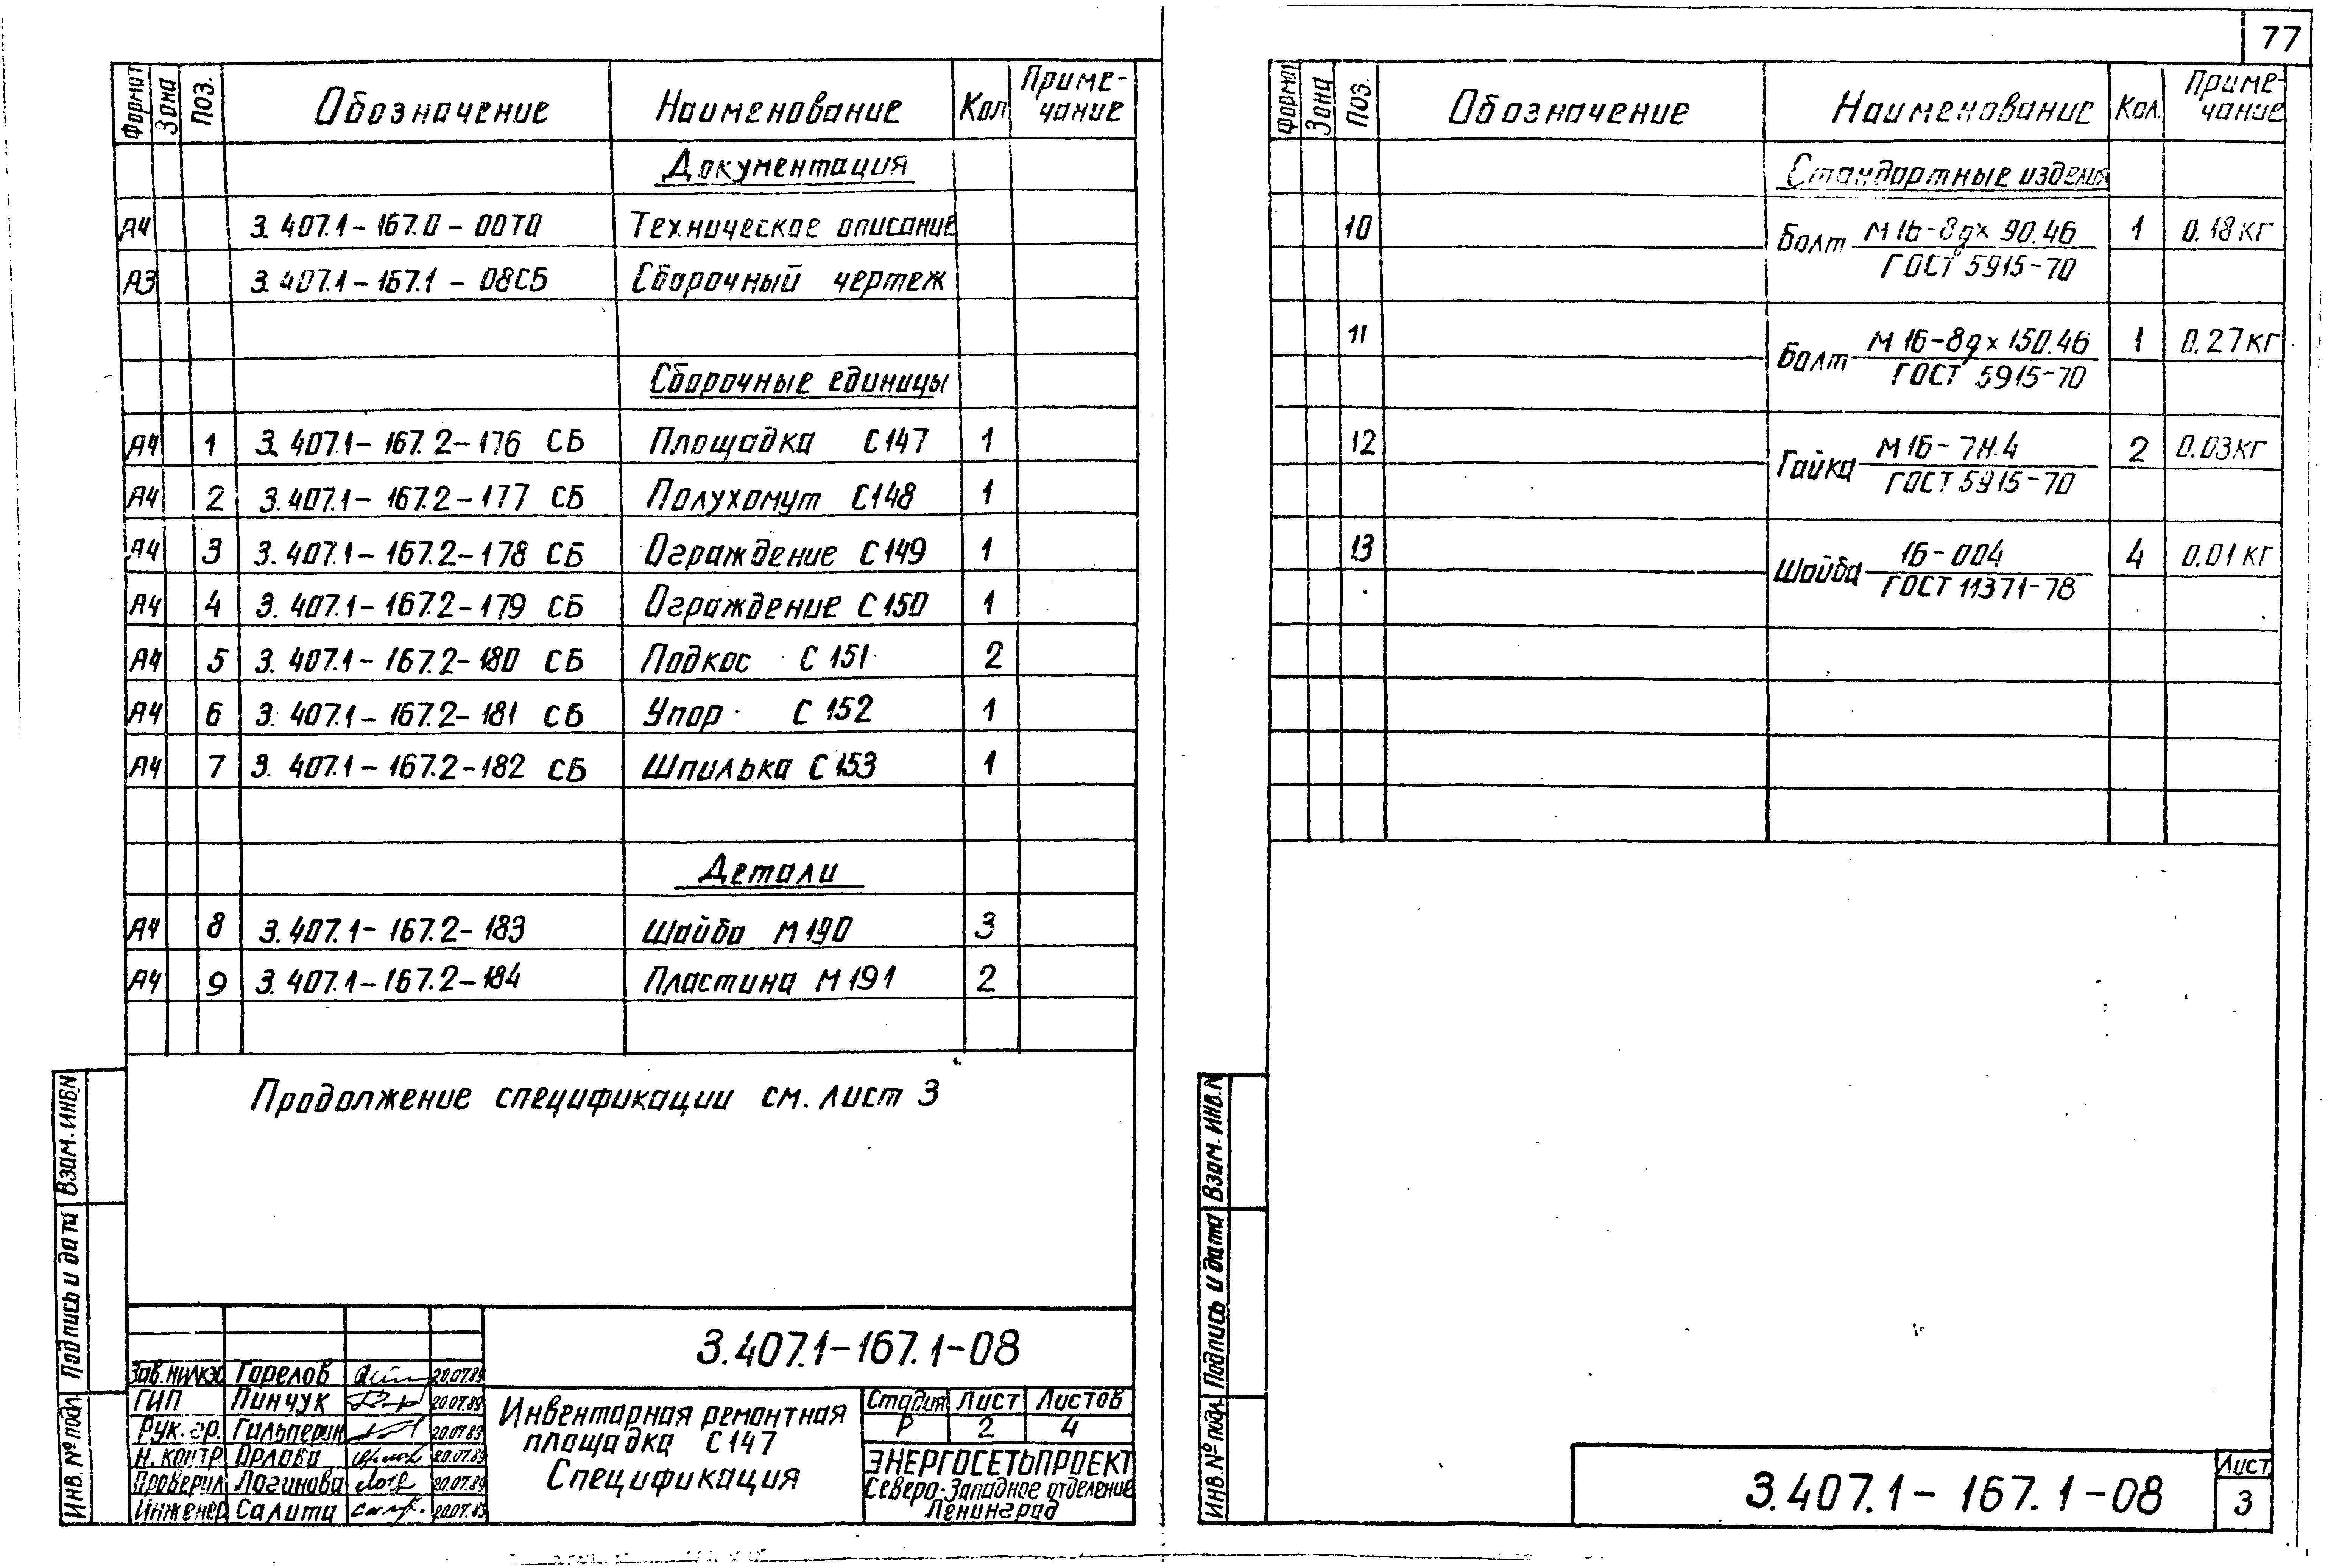 77
Формат Зона Поз. Обозначение Наименование Кол Приме-чание
Документация
А4 3.407.1-167.0-00ТО Техническое описание
А3 3.407.1-167.1-08СБ Сборочный чертеж
Сборочные единицы
А4 1 3.407.1-167.2-176 СБ Площадка С147 1
А4 2 3.407.1-167.2-177 СБ Полухомут С148 1
А4 3 3.407.1-167.2-178 СБ Ограждение С149 1
А4 4 3.407.1-167.2-179 СБ Ограждение С150 1
А4 5 3.407.1-167.2-180 СБ Подкос С151 2
А4 6 3.407.1-167.2-181 СБ Упор С152 1
А4 7 3.407.1-167.2-182 СБ Шпилька С153 1
Детали
А4 8 3.407.1-167.2-183 Шайба М190 3
А4 9 3.407.1-167.2-184 Пластина М191 2
Продолжение спецификации см. лист 3
Взам. инв. N
Подпись и дата
Инв. № подл.
3.407.1-167.1-08
Зав. НИЛКЭС Горелов 20.07.89
ГИП Пинчук 20.07.89
Рук. гр. Гальперин 20.07.89
Н. контр. Орлова 20.07.89
Проверил Логинова 20.07.89
Инженер Салита 20.07.89
Инвентарная ремонтная
площадка С147
Спецификация
Стадия Лист Листов
Р 2 4
ЭНЕРГОСЕТЬПРОЕКТ
Северо-Западное отделение
Ленинград
Формат Зона Поз. Обозначение Наименование Кол. Приме-чание
Стандартные изделия
10 Болт М16-8gх90.46 1 0.18кг
ГОСТ 5915-70
11 Болт М16-8gх150.46 1 0.27кг
ГОСТ 5915-70
12 Гайка М16-7Н.4 2 0.03кг
ГОСТ 5915-70
13 Шайба 16-004 4 0.01кг
ГОСТ 11371-78
Взам. инв. N
Подпись и дата
Инв. № подл.
3.407.1-167.1-08
Лист
3